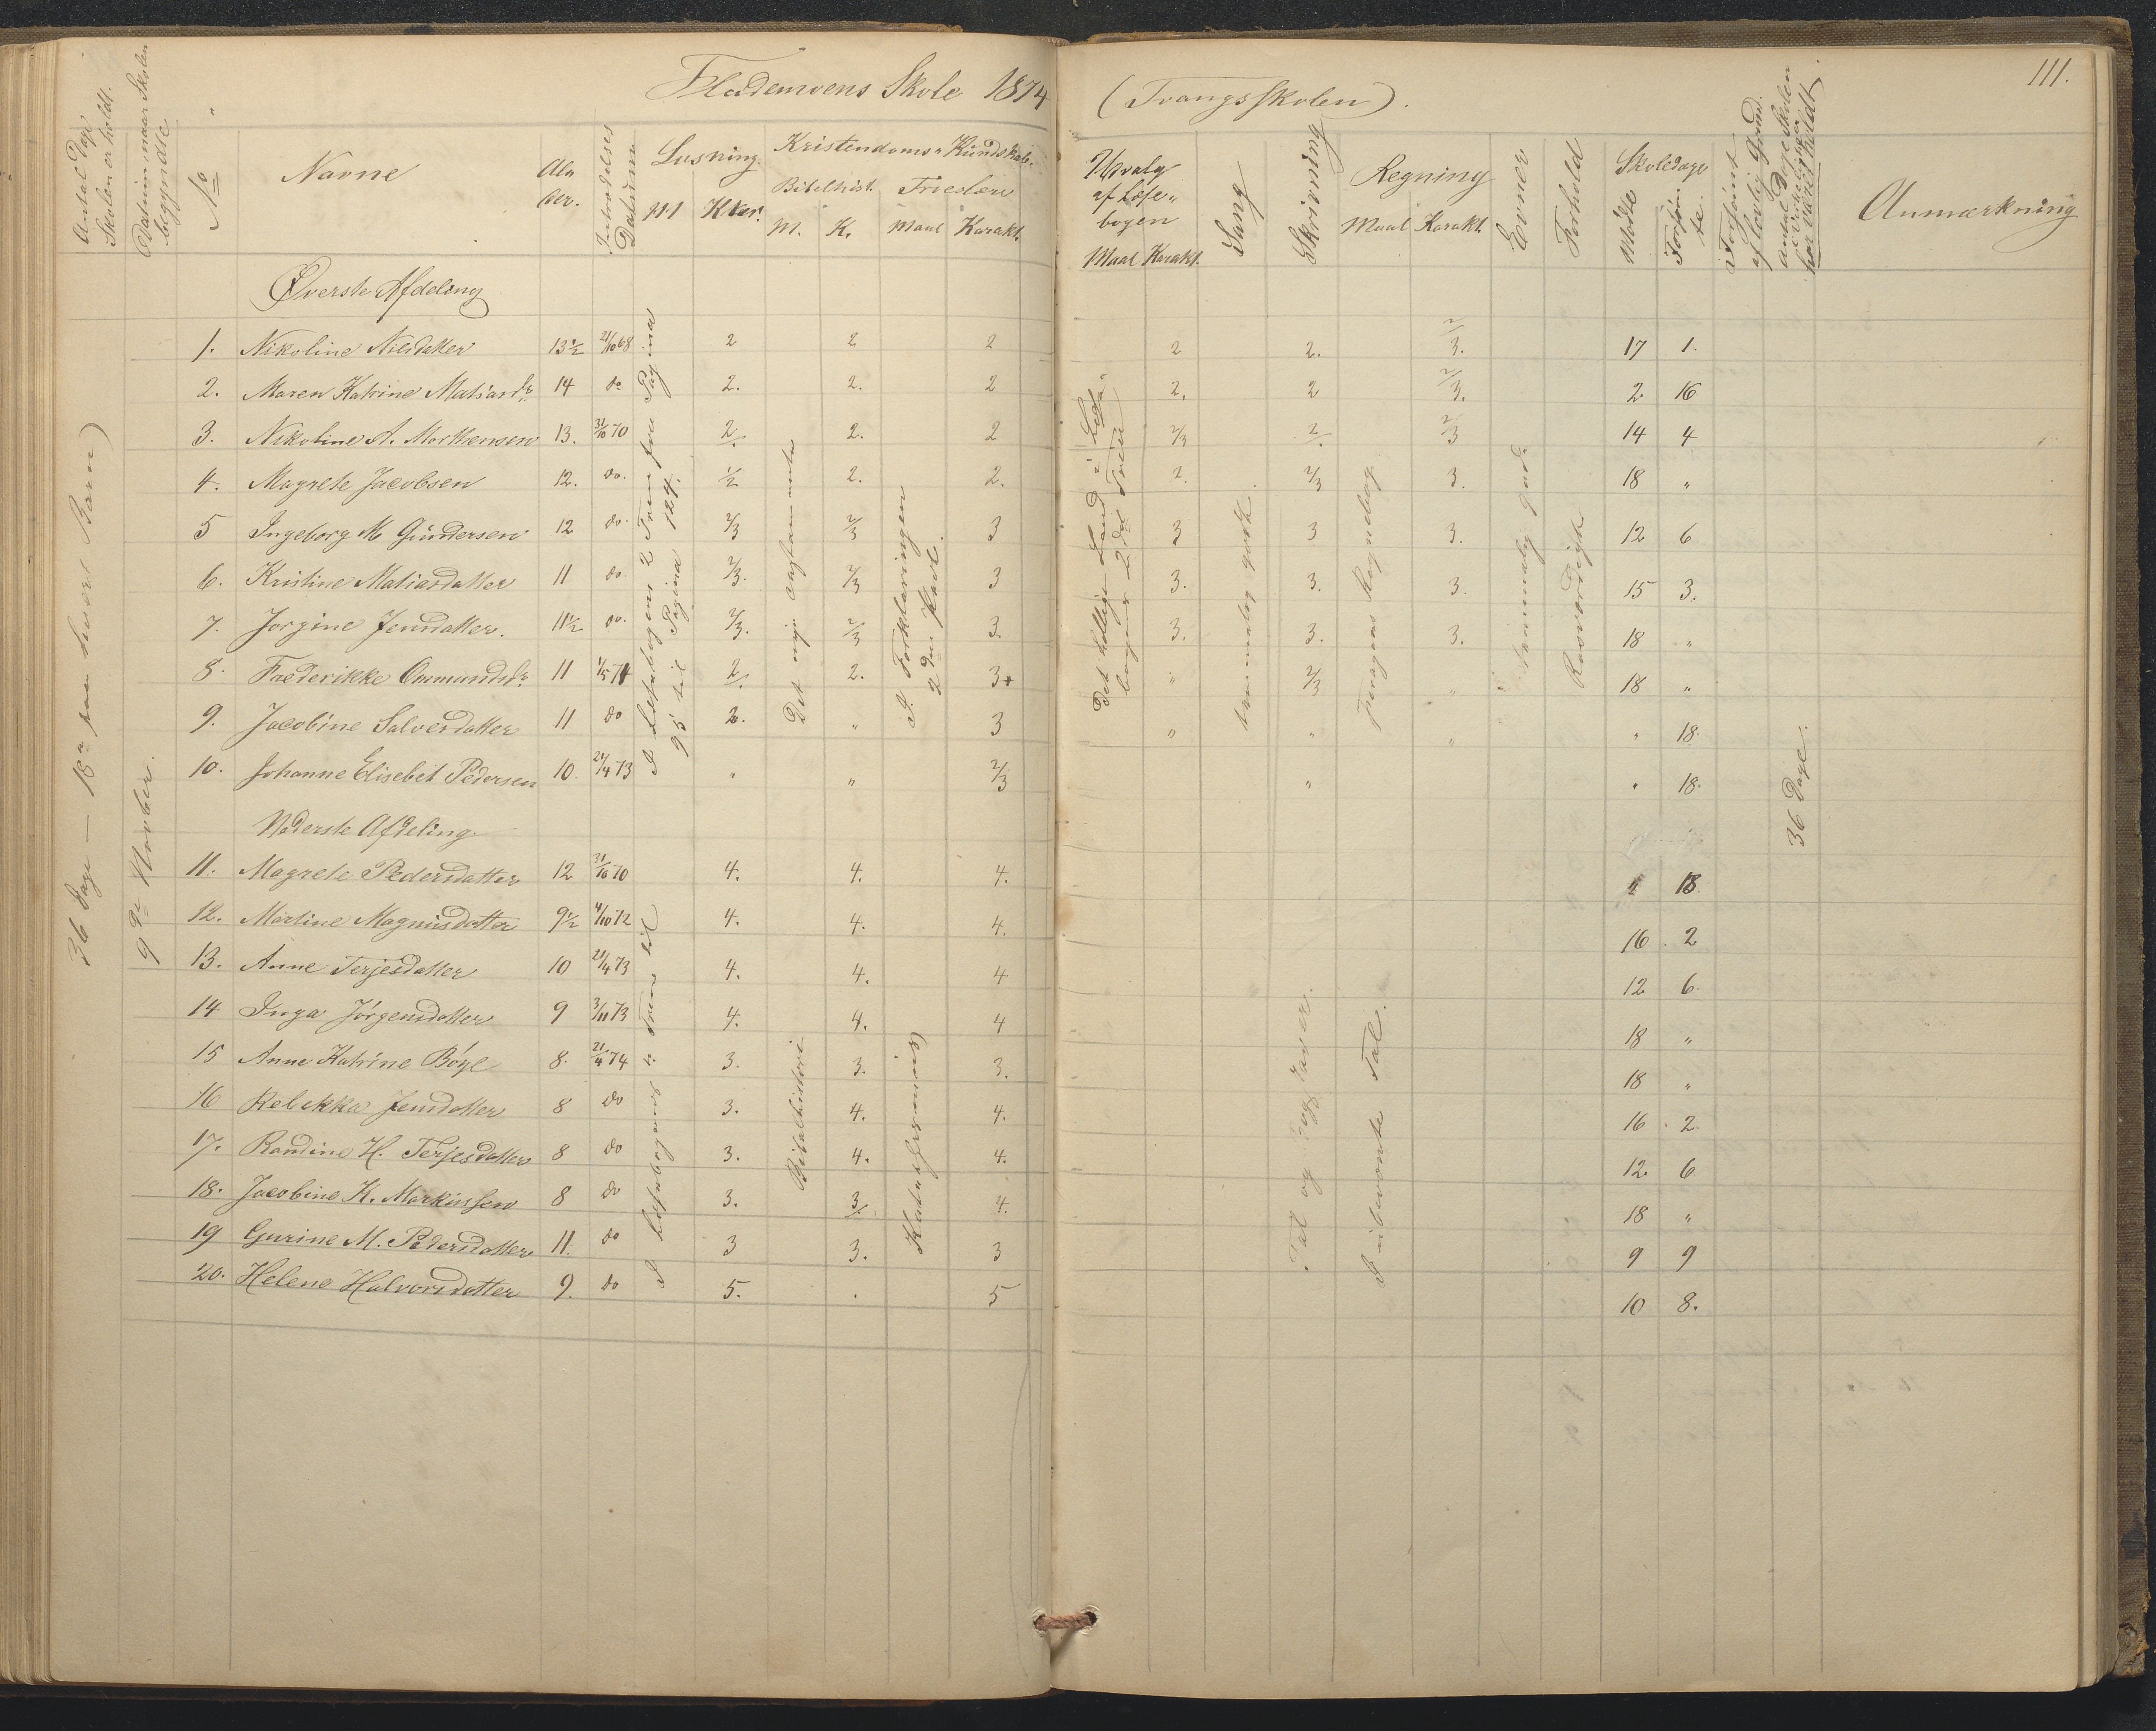 Flademoens Skole 1874 (Tvangsskolen). 111.
Antal Dage Skolen er holdt.
Datum naar Skolen begyndte
No
Navne
Alder.
Indtrædelses Datum
Læsning. M Kkar.
Kristendoms Kundskab.
Bibelhist. M. K.
Troeslære Maal Karakt.
Udvalg af Læsebogen Maal Karakt.
Sang
Skrivning
Regning Maal Karakt.
Evner
Forhold
Skoledage Mødte Forsømte.
Forsømt af lovlig Grund.
Antal Dage Skolen i Virkeligheden har været holdt
Anmærkning
36 Dage — 18 paa hvert Barn)
9de Novbr.
Øverste Afdeling
1. Nikoline Nilsdatter 13½ 21/10 68 2 2 2 2 2. 2/3. 17 1.
2. Maren Katrine Matiasdr 14 do 2. 2. 2 2. 2 2/3. 2 16
3. Nikoline A. Morthensen 13. 31/10 70 2/. 2. 2 2/3 2/. 2/3 14 4
4. Magrete Jacobsen 12. do. 1/2 2. 2. 2. 2/3 3. 18 "
5 Ingeborg M Gundersen 12 do. 2/3 2/3 3 3 3 3. 12 6
6. Kristine Matiasdatter 11 do 2/3. 2/3 3 3. 3. 3. 15 3.
7. Jorgine Jensdatter. 11½ do. 2/3. 2/3 3. 3. 3. 3. 18 "
8. Fredrikke Ommundsdr 11 1/5 71 2/. 2. 3+ " 2/3 " 18 "
9. Jacobine Salvesdatter 11 do 2. " 3 " " " " 18.
10. Johanne Elisebet Pedersen 10. 21/4 73 " " 2/3 " " 18.
I Læsebogens 2 Trin fra Pagina 95 til Pagina 124.
Det nye Testamente
I Forklaringen 2den Part.
Det hellige Land i Læsebogens 2det Trin
temmelig godt.
Regnebog
temmelig gode
Rosværdigt
36 Dage.
Nederste Afdeling
11. Magrete Pedersdatter 12 31/10 70 4. 4. 4. " 18
12. Martine Magnusdatter 9½ 4/10 72 4. 4. 4. 16 2
13. Anne Terjesdatter 10 21/4 73 4. 4. 4 12 6.
14 Inga Jørgensdatter 9 3/11 73 4. 4. 4 18 "
15 Anne Katrine Bøye 8. 21/4 74 3. 3. 3. 18 "
16 Rebekka Jensdatter 8 do 3. 4. 4. 16 2.
17. Randine H. Terjesdatter 8 do 3. 4. 4. 12. 6
18. Jacobine K. Markussen 8 do 3. 3/. 4. 18 "
19 Gurine M. Pedersdatter 11. do 3 3. 3 9 9
20. Helene Halvorsdatter 9. do 5. . 5 10 8.
I Læsebogens 1. Trin til
Bibelhistorie
Katekismus
Tal og Bogstaver.
I ubenevnte Tal.